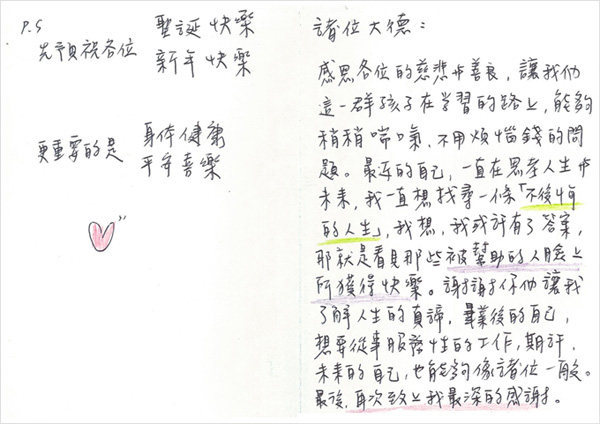 P.S
先預祝各位 聖誕快樂
新年快樂
更重要的是 身体健康
平安喜樂
諸位大德：
感恩各位的慈悲与善良，讓我们
這一群孩子在學習的路上，能夠
稍稍喘口氣，不用煩惱錢的問
題。最近的自己，一直在思考人生与
未來，我一直想找尋一條「不後悔
的人生」，我想，我或許有了答案，
那就是看見那些被幫助的人臉上
所獲得快樂。謝謝你们讓我
了解人生的真諦，畢業後的自己，
想要從事服務性的工作，期許，
未來的自己，也能夠像諸位一般。
最後，再次致上我最深的感謝。